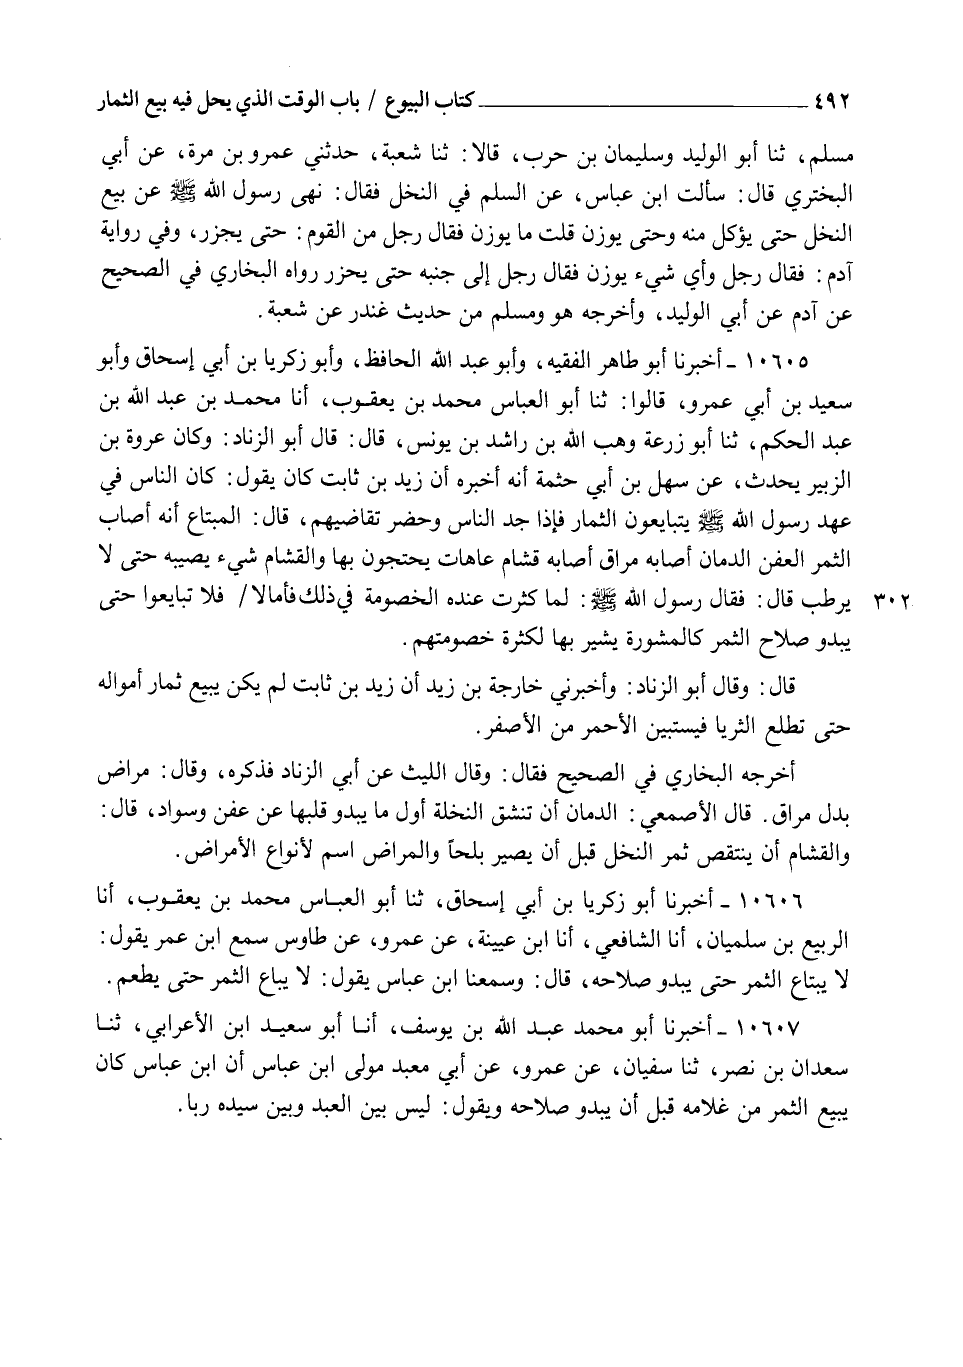 ٤٩٢ ــــــــــــــــــــ كتاب البيوع / باب الوقت الذي يحل فيه بيع الثمار
مسلم، ثنا أبو الوليد وسليمان بن حرب، قالا: ثنا شعبة، حدثني عمرو بن مرة، عن أبي
البختري قال: سألت ابن عباس، عن السلم في النخل فقال: نهى رسول الله ﷺ عن بيع
النخل حتى يؤكل منه وحتى يوزن قلت ما يوزن فقال رجل من القوم: حتى يجزر، وفي رواية
آدم: فقال رجل وأي شيء يوزن فقال رجل إلى جنبه حتى يحزر رواه البخاري في الصحيح
عن آدم عن أبي الوليد، وأخرجه هو ومسلم من حديث غندر عن شعبة.
١٠٦٠٥ ـ أخبرنا أبو طاهر الفقيه، وأبو عبد الله الحافظ، وأبو زكريا بن أبي إسحاق وأبو
سعيد بن أبي عمرو، قالوا: ثنا أبو العباس محمد بن يعقوب، أنا محمد بن عبد الله بن
عبد الحكم، ثنا أبو زرعة وهب الله بن راشد بن يونس، قال: قال أبو الزناد: وكان عروة بن
الزبير يحدث، عن سهل بن أبي حثمة أنه أخبره أن زيد بن ثابت كان يقول: كان الناس في
عهد رسول الله ﷺ يتبايعون الثمار فإذا جد الناس وحضر تقاضيهم، قال: المبتاع أنه أصاب
الثمر العفن الدمان أصابه مراق أصابه قشام عاهات يحتجون بها والقشام شيء يصيبه حتى لا
يرطب قال: فقال رسول الله ﷺ: لما كثرت عنده الخصومة في ذلك فأمالا/ فلا تبايعوا حتى ٣٠٢
يبدو صلاح الثمر كالمشورة يشير بها لكثرة خصومتهم.
قال: وقال أبو الزناد: وأخبرني خارجة بن زيد أن زيد بن ثابت لم يكن يبيع ثمار أمواله
حتى تطلع الثريا فيستبين الأحمر من الأصفر.
أخرجه البخاري في الصحيح فقال: وقال الليث عن أبي الزناد فذكره، وقال: مراض
بدل مراق. قال الأصمعي: الدمان أن تنشق النخلة أول ما يبدو قلبها عن عفن وسواد، قال:
والقشام أن ينتقص ثمر النخل قبل أن يصير بلحاً والمراض اسم لأنواع الأمراض.
١٠٦٠٦ ـ أخبرنا أبو زكريا بن أبي إسحاق، ثنا أبو العباس محمد بن يعقوب، أنا
الربيع بن سلميان، أنا الشافعي، أنا ابن عيينة، عن عمرو، عن طاوس سمع ابن عمر يقول:
لا يبتاع الثمر حتى يبدو صلاحه، قال: وسمعنا ابن عباس يقول: لا يباع الثمر حتى يطعم.
١٠٦٠٧ ـ أخبرنا أبو محمد عبد الله بن يوسف، أنا أبو سعيد ابن الأعرابي، ثنا
سعدان بن نصر، ثنا سفيان، عن عمرو، عن أبي معبد مولى ابن عباس أن ابن عباس كان
يبيع الثمر من غلامه قبل أن يبدو صلاحه ويقول: ليس بين العبد وبين سيده ربا.